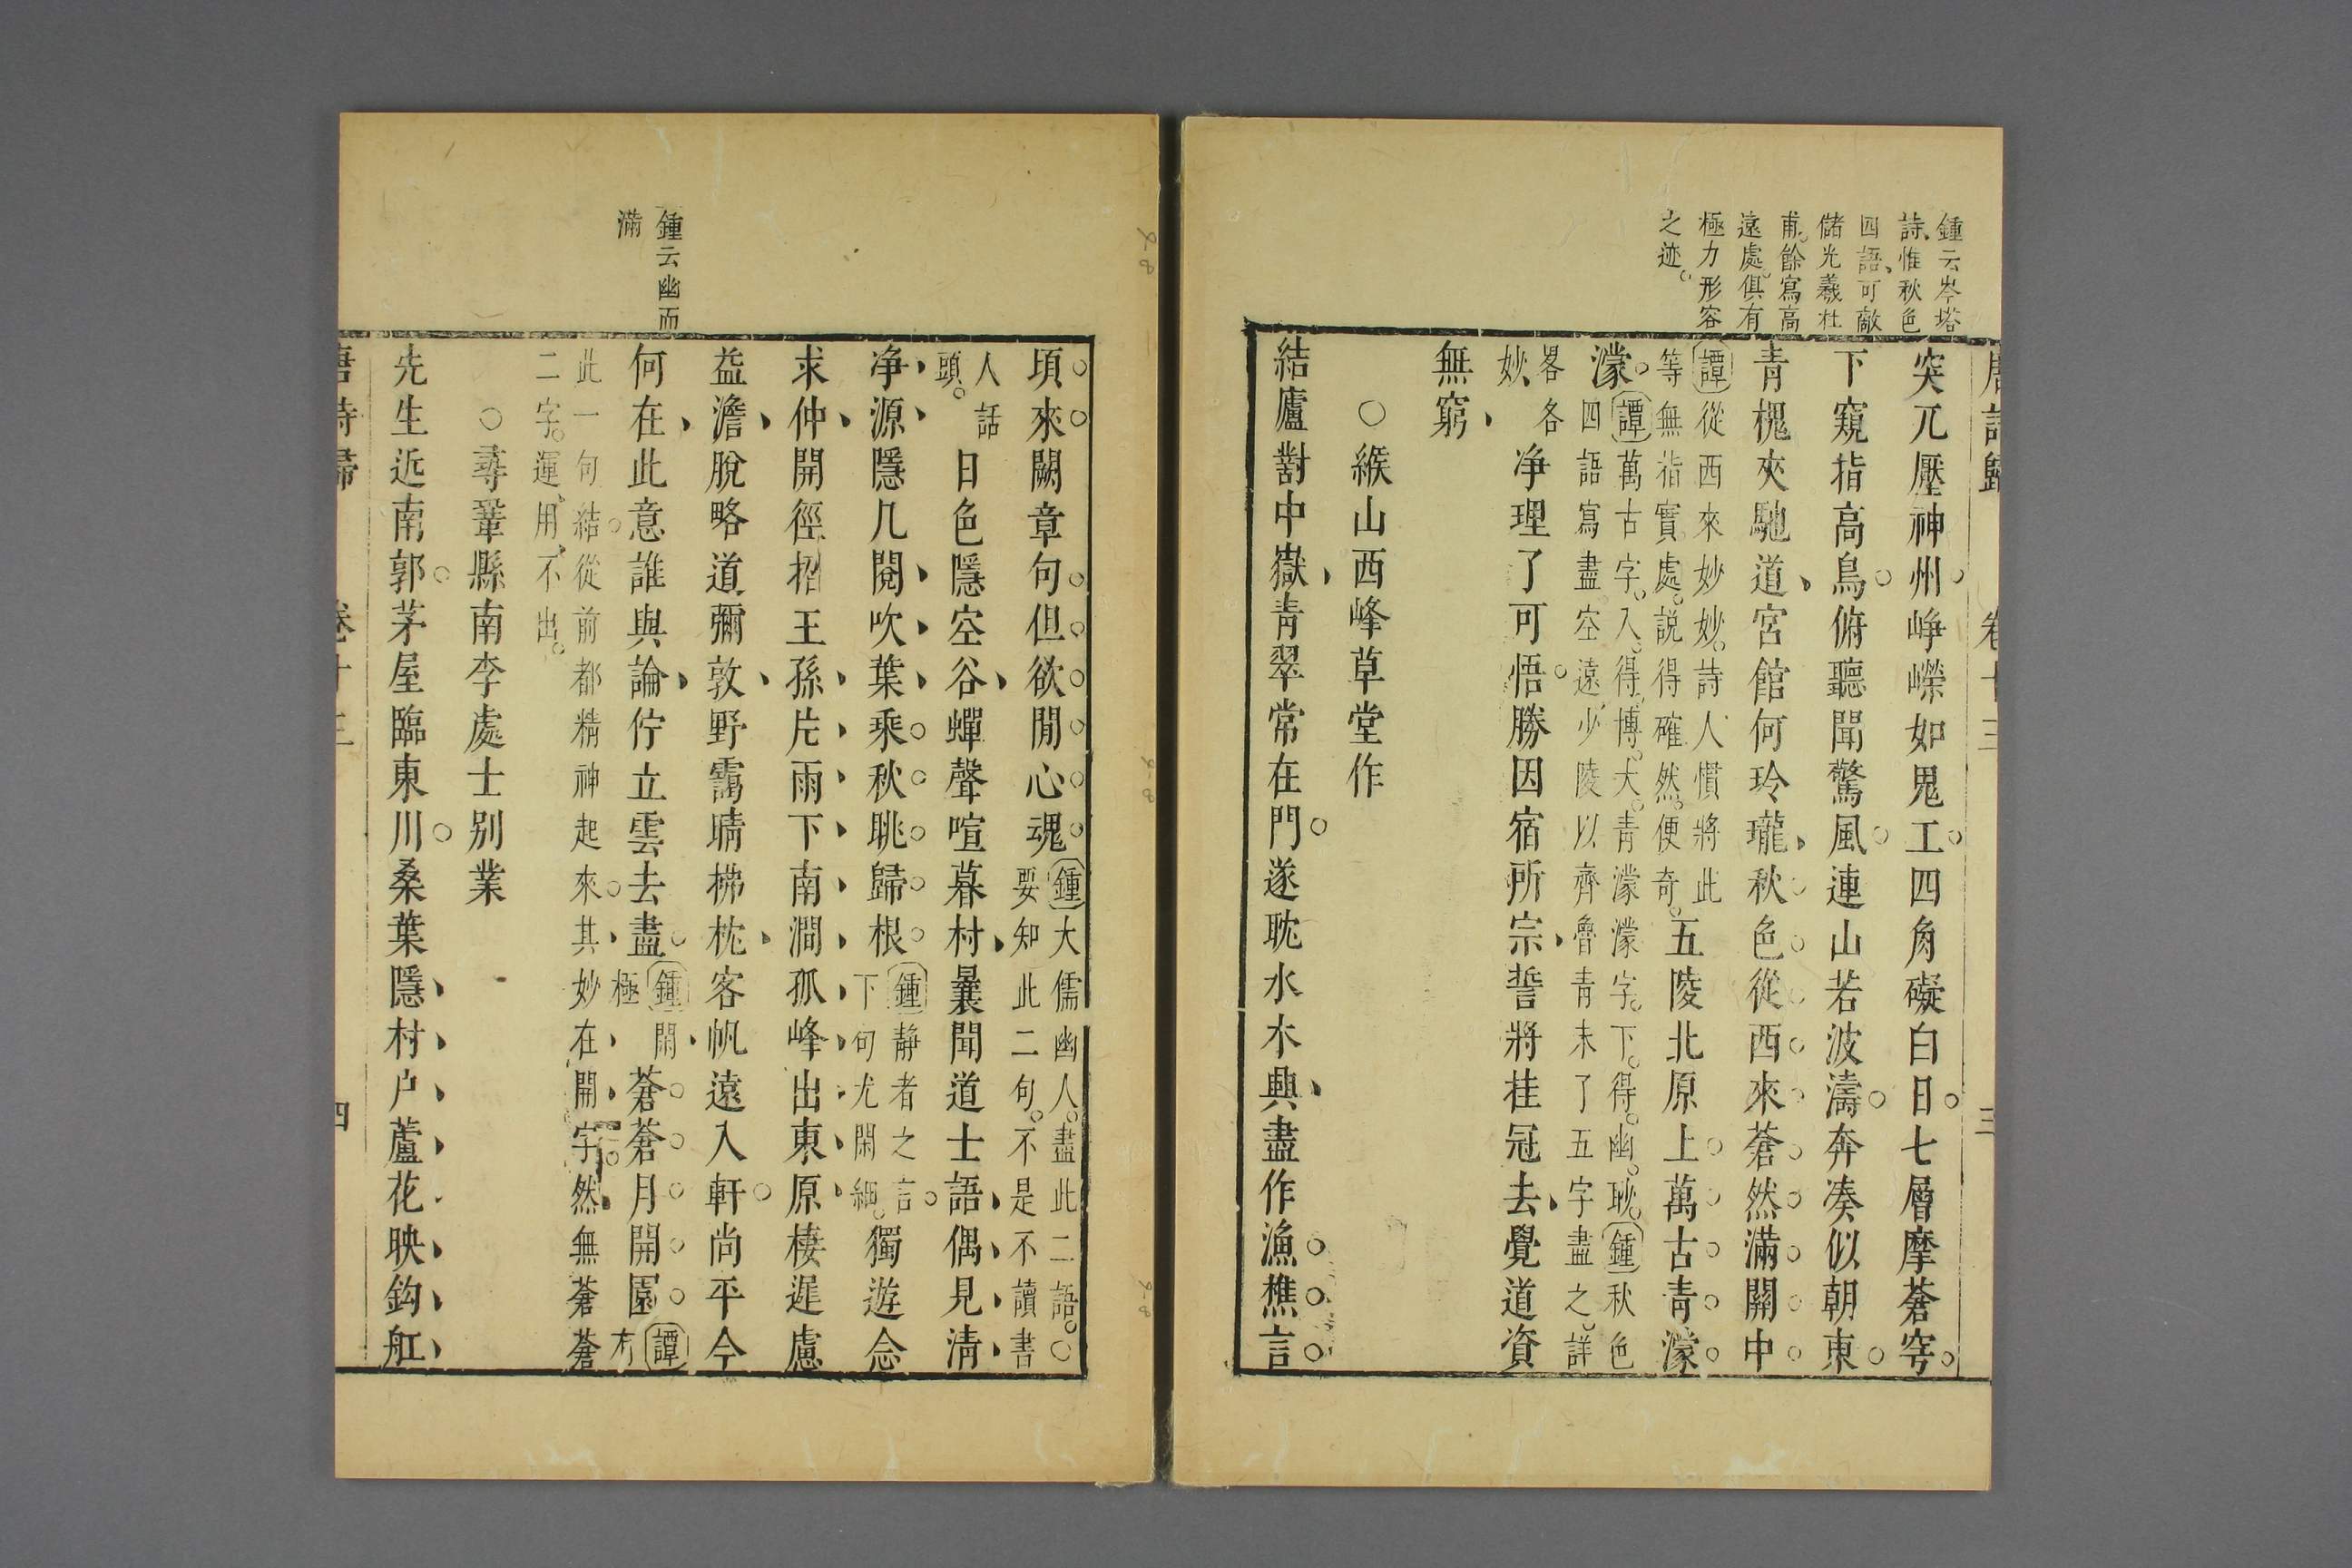 唐詩歸 卷十三 三
鍾云岑塔
詩惟秋色
四語可敵
儲光羲杜
甫餘寫高
遠處俱有
極力形容
之迹
突兀壓神州崢嶸如鬼工四角礙白日七層摩蒼穹
下窺指高鳥俯聽聞驚風連山若波濤奔凑似朝東
青槐夾馳道宮館何玲瓏秋色從西來蒼然滿關中
譚從西來妙妙詩人慣將此
等無指實處說得確然便奇
五陵北原上萬古青濛
濛
譚萬古字入得博大青濛濛字下得幽耿鍾秋色
四語寫盡空遠少陵以齊魯青未了五字盡之詳
畧各
妙
净理了可悟勝因宿所宗誓將挂冠去覺道資
無窮
○緱山西峰草堂作
結廬對中嶽青翠常在門遂耽水木興盡作漁樵言
頃來闕章句但欲閒心魂
鍾大儒幽人盡此二語○
要知此二句不是不讀書
人話
頭
日色隱空谷蟬聲喧暮村曩聞道士語偶見清
净源隱几閱吹葉乘秋眺歸根
鍾靜者之言
下句尤閑細
獨遊念
求仲開徑招王孫片雨下南澗孤峰出東原棲遲慮
益澹脫略道彌敦野靄晴拂枕客帆遠入軒尚平今
何在此意誰與論佇立雲去盡
鍾閑
極
蒼蒼月開園
譚
有
此一句結從前都精神起來其妙在開字然無蒼蒼
二字運用不出
鍾云幽而
滿
○尋鞏縣南李處士别業
先生近南郭茅屋臨東川桑葉隱村户蘆花映釣舡
唐詩歸 卷十三 四